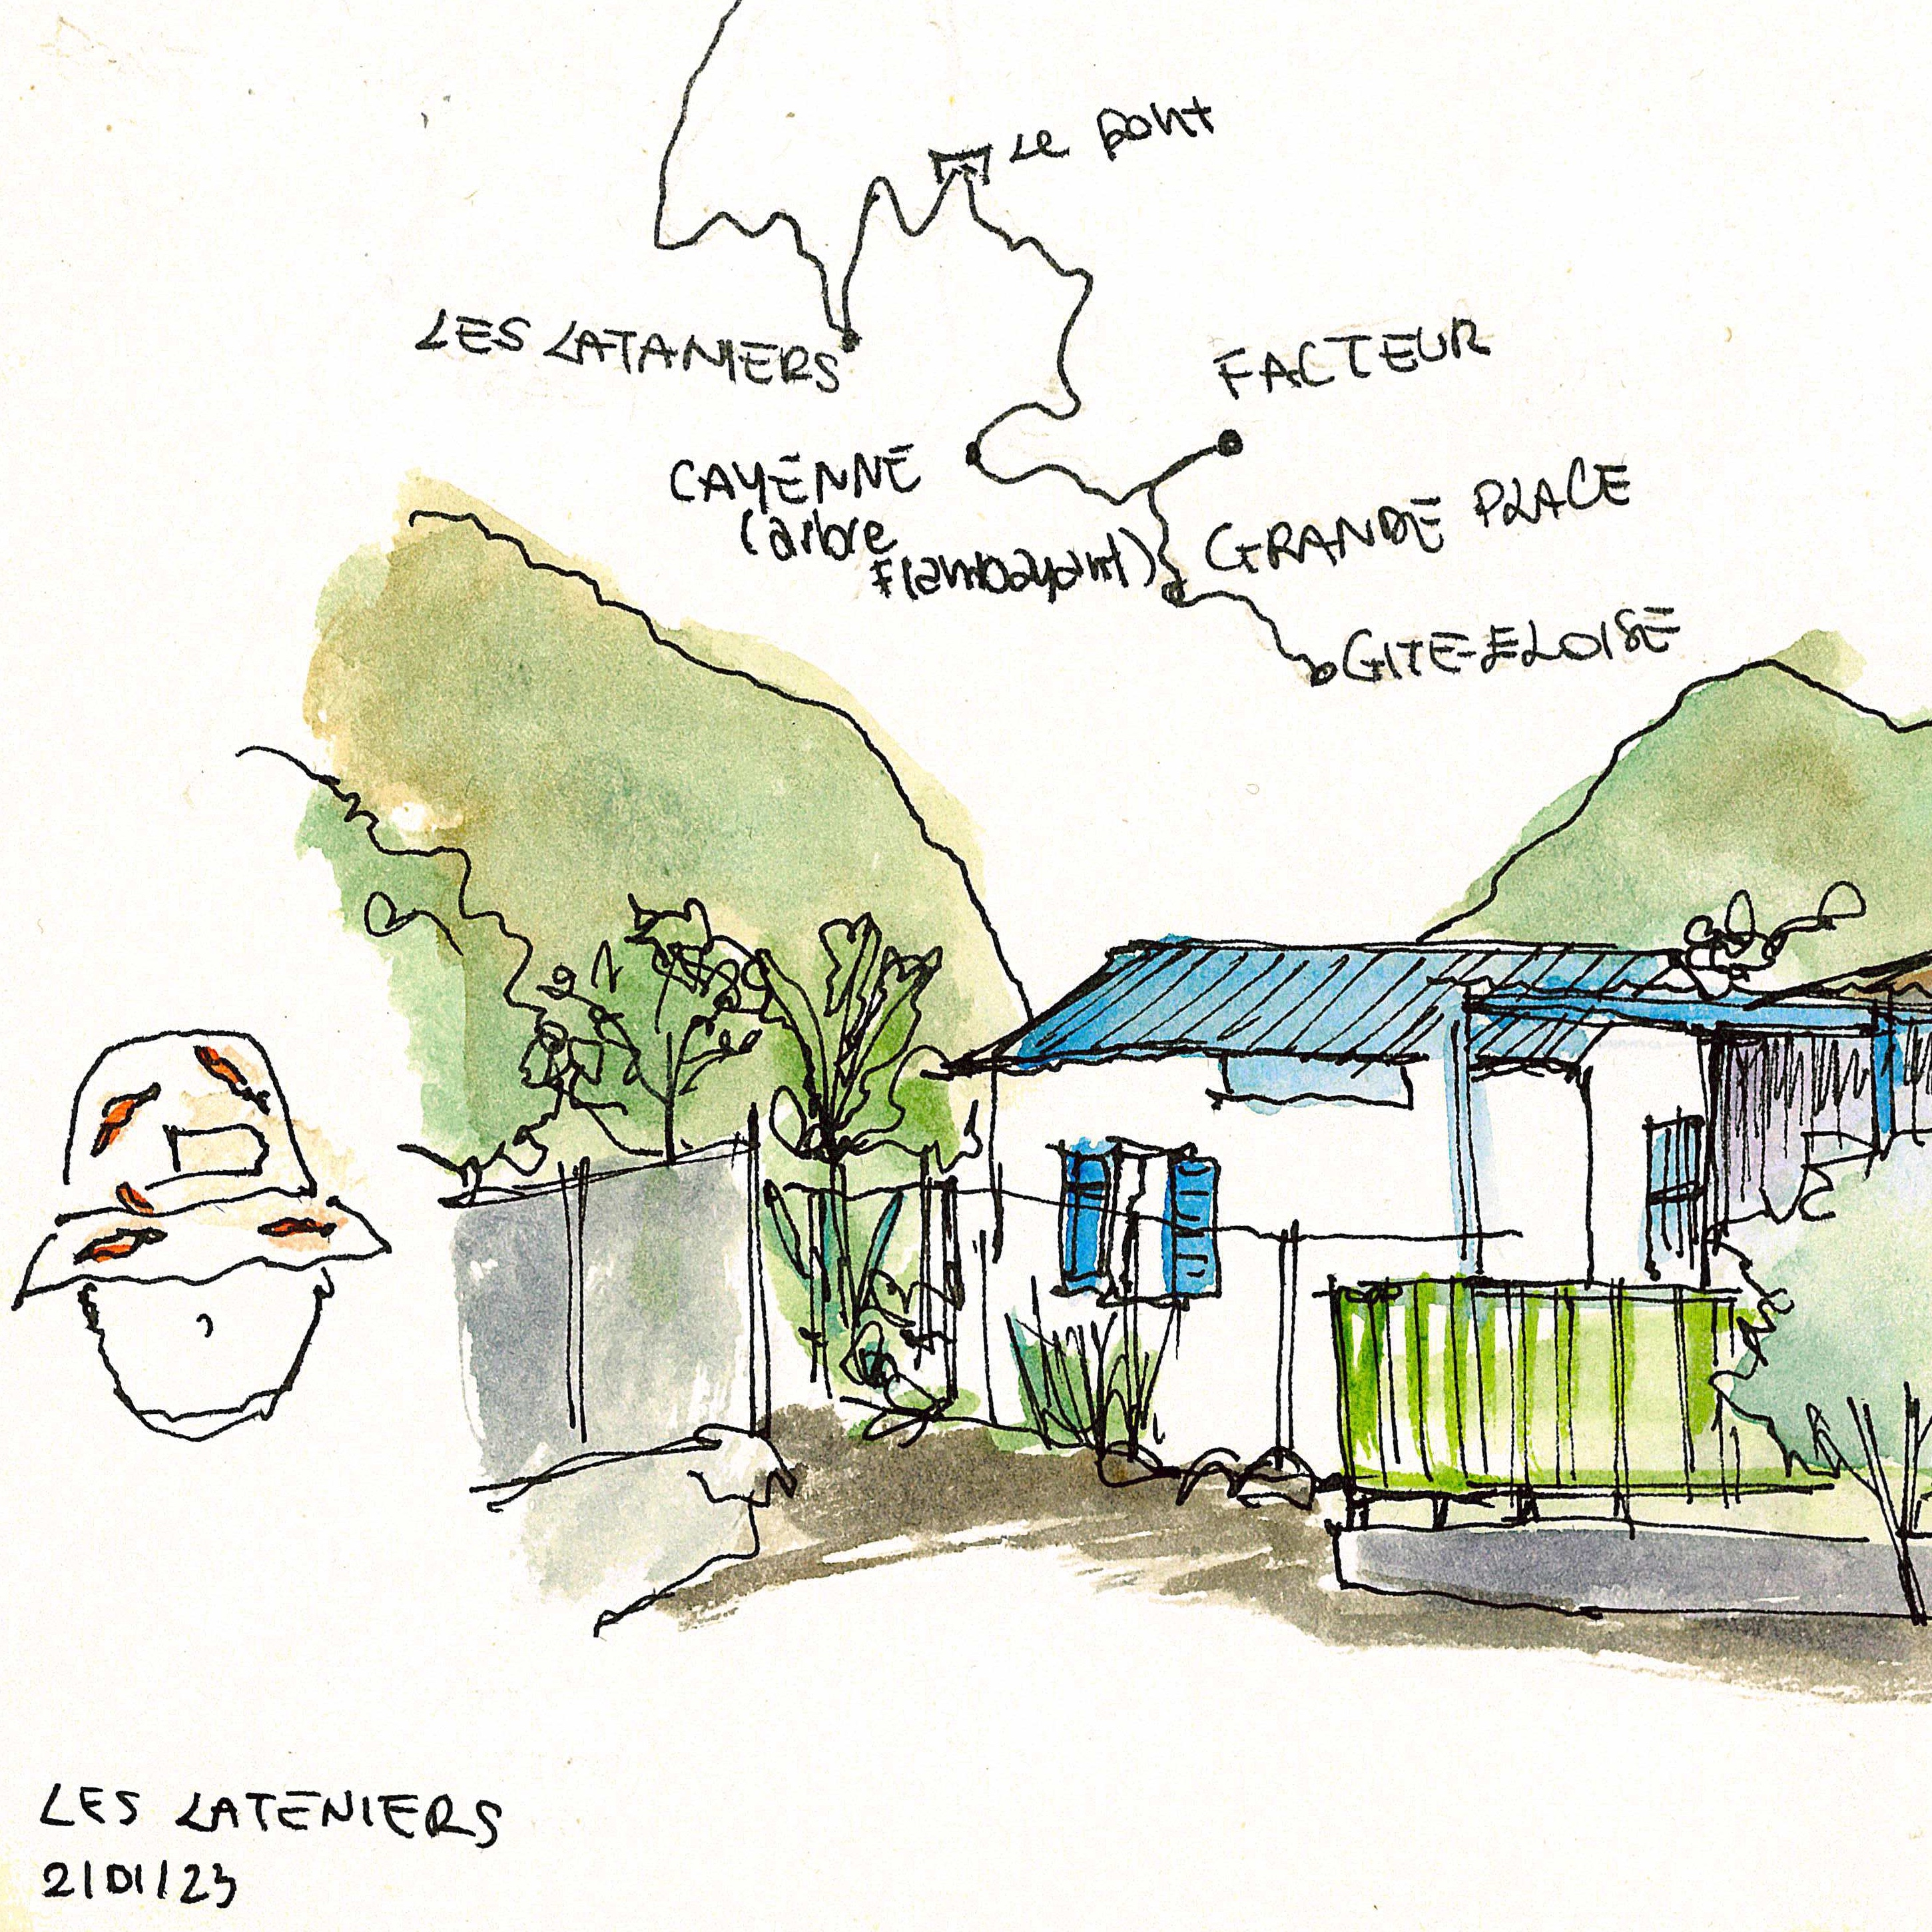 Le pont
LES LATANIERS
FACTEUR
CAYENNE
(arbre
Flamboyant)
GRANDE PLACE
GITE-ELOISE
LES LATENIERS
2/01/23